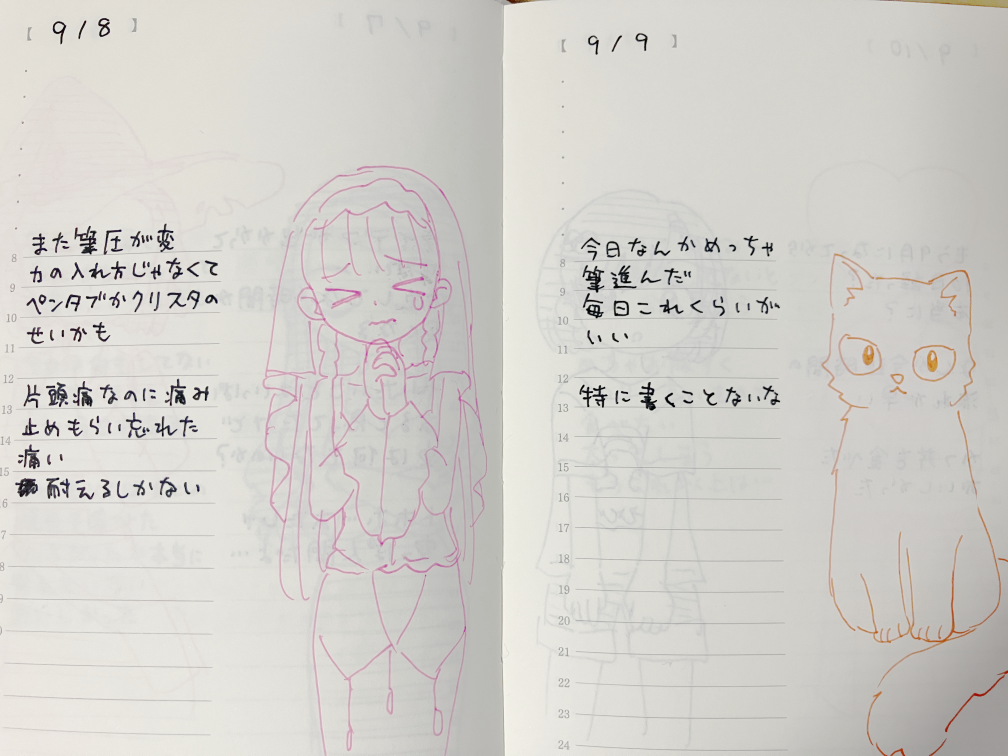 [ 9/8 ]
また筆圧が変
力の入れ方じゃなくて
ペンタブかクリスタの
せいかも
片頭痛なのに痛み
止めもらい忘れた
痛い
耐えるしかない
8
9
10
11
12
13
14
15
16
7
8
9
[ 9/9 ]
今日なんかめっちゃ
筆進んだ
毎日これくらいが
いい
特に書くことないな
8
9
10
11
12
13
14
15
16
17
18
19
20
21
22
23
24